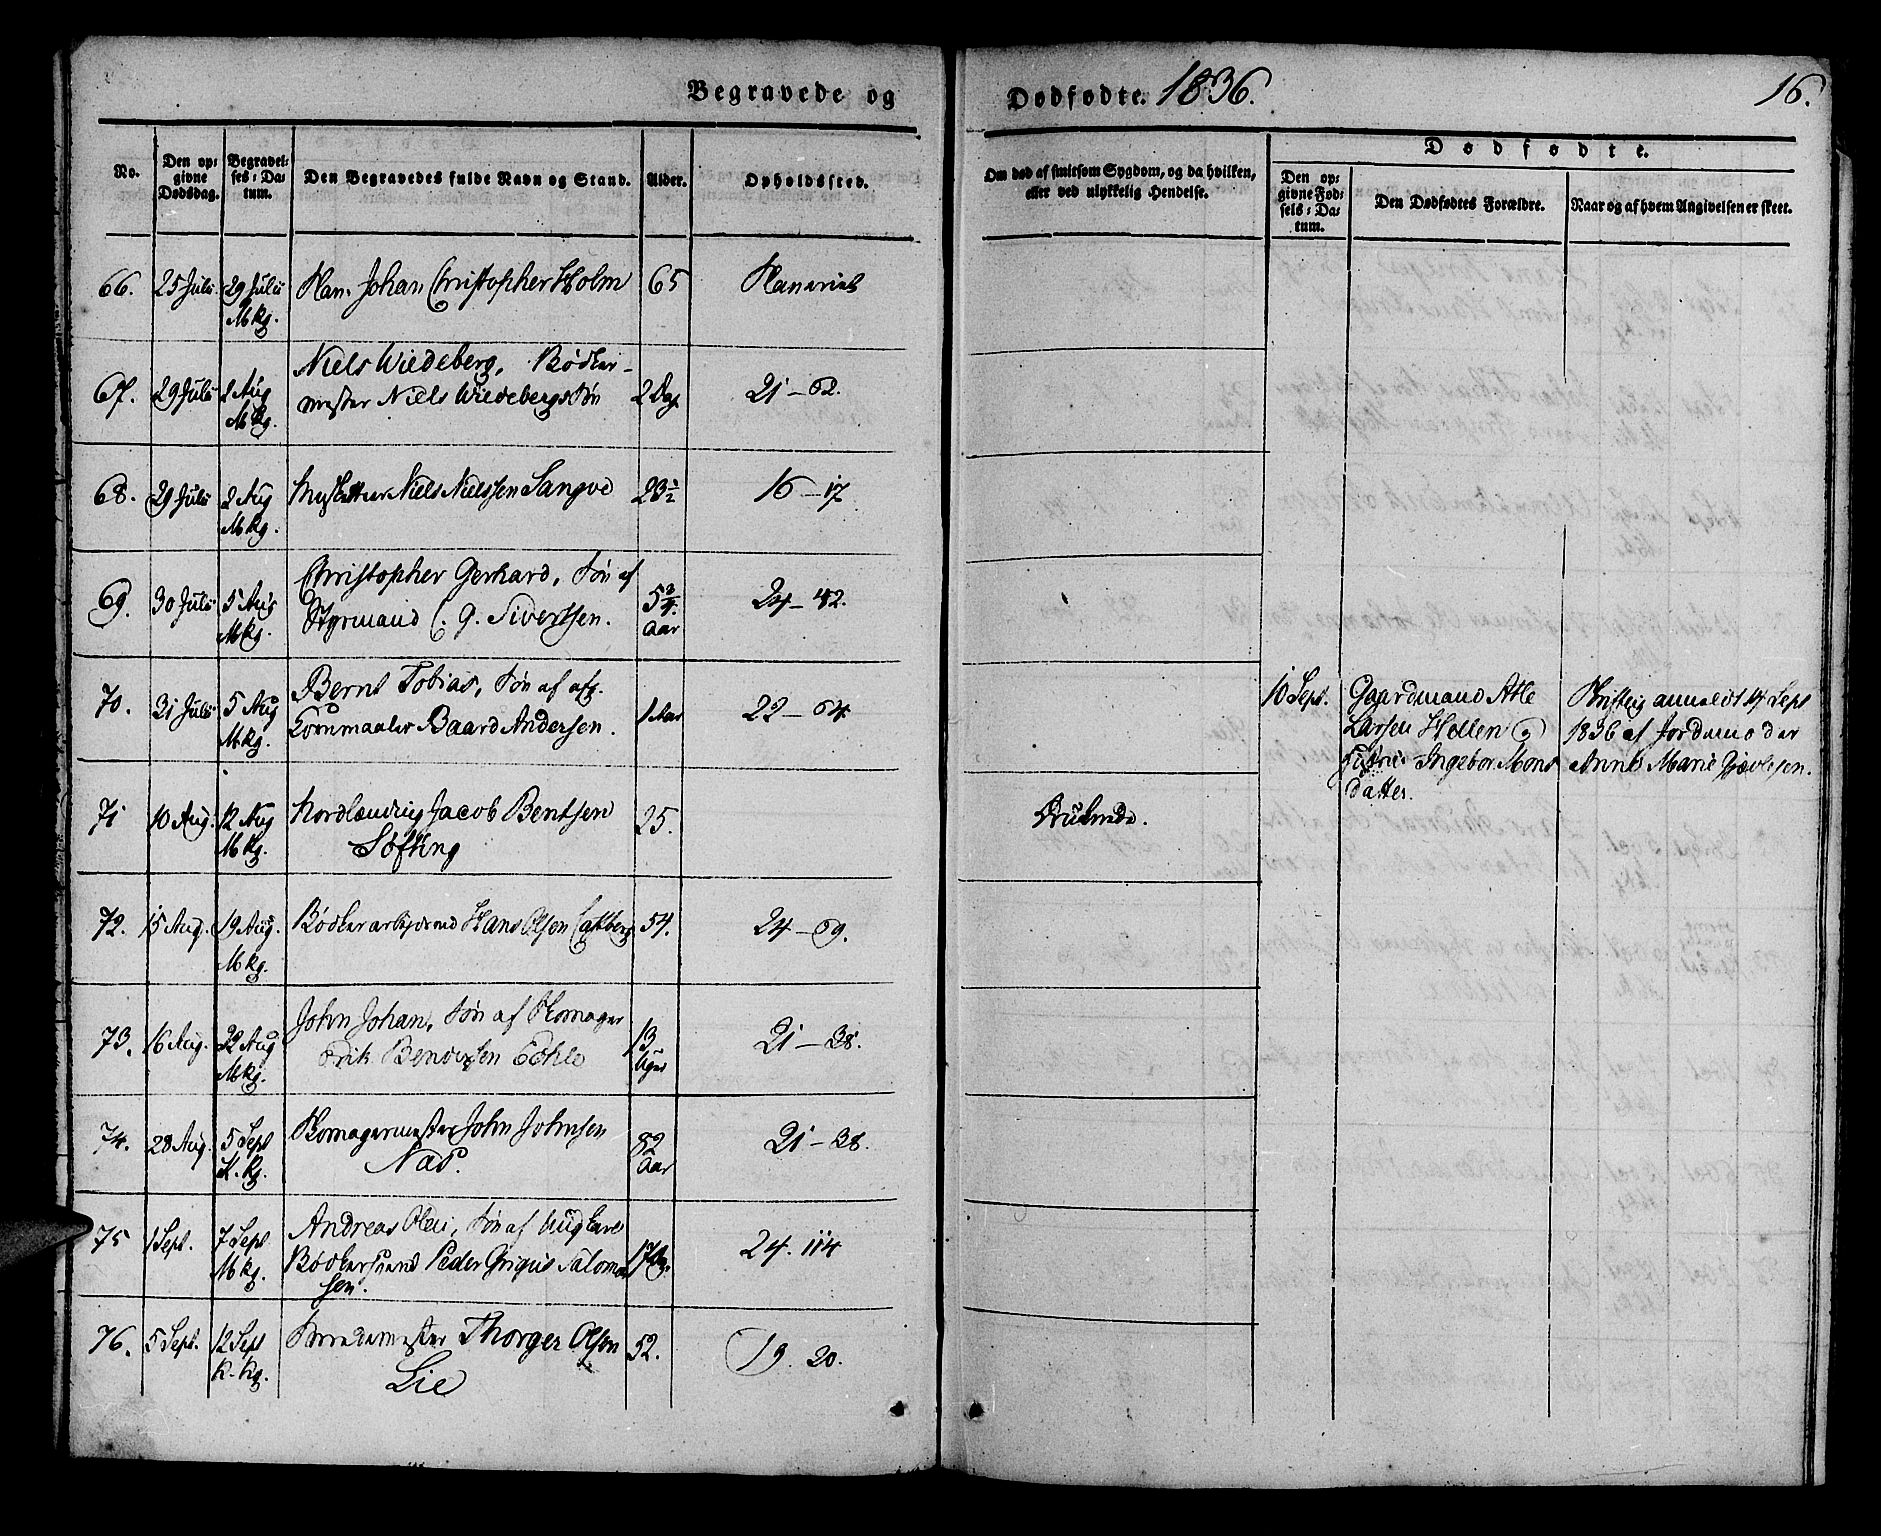 Begravede og Dødfødte. 1836. 16.
No. | Den opgivne Dødsdag. | Begravelses-Datum. | Den Begravedes fulde Navn og Stand. | Alder. | Opholdssted. | Om død af smitsom Sygdom, og da hvilken, eller ved ulykkelig Hendelse.
Dødfødte.
Den opgivne Fødsels-Datum. | Den Dødfødtes Forældre. | Naar og af hvem Angivelsen er skeet.
66. 25 Julii 29 Julii Johan Christopher Holm 65
Mkg.
67. 29 Julii 2 Aug Niels Wiedeberg, Bødker-
Mkg. mester Niels Wiedebergs Søn 2 Dage 21-62.
68. 29 Julii 2 Aug Musketteer Niels Nielssen Sangve 23½ 16-17
Mkg.
69. 30 Julii 5 Aug Christopher Gerhard, Søn af
Mkg. Styrmand C. G. Sivertsen. 5¾ Aar 24-42.
70. 31 Julii 5 Aug Bernt Tobias, Søn af afg.
Mkg. Kornmaaler Baard Andersen. 1 Aar 22-64.
10 Sept. Gaardmand Atle
Larsen Hellen og
Ingebor Mons
datter.
Skriftlig anmeldt 14 Sept
1836 af Jordmoder
Anne Marie
71 10 Aug. 12 Aug Nordlænding Jacob Bentsen 25. Druknede.
Mkg. Søfting
72. 15 Aug. 19 Aug. Bødkerarbeidsmand Hans Olsen 54. 24-69.
Mkg.
73. 16 Aug. 22 Aug John Johan, Søn af Skomager
Mkg. Erik 13 Uger 21-38.
74. 28 Aug. 5 Sept Skomagermester John Johnsen
K.kg. Næs. 82 Aar 21-38.
75 1 Sept. 7 Sept Andreas Olai, Søn af
Mkg. Bødkersvend Peder Salomon
sen. 24. 114
76. 5 Sept. 12 Sept Thorger Olson 52. 19. 20.
K.kg. Lie